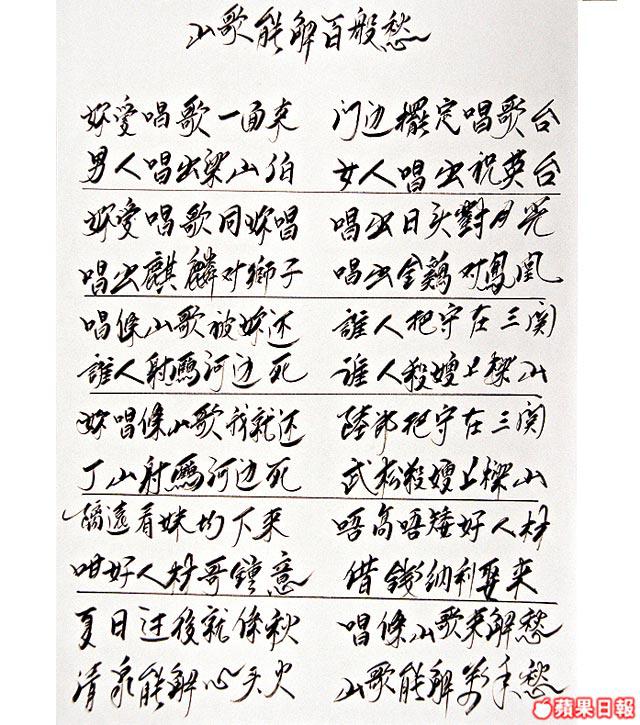 山歌能解百般愁
妳愛唱歌一面來 门边擺定唱歌台
男人唱出梁山伯 女人唱出祝英台
妳愛唱歌同妳唱 唱出日头對月光
唱出麒麟对獅子 唱出金鷄对鳳凰
唱條山歌被妳还 誰人把守在三関
誰人射鴈河边死 谁人殺嫂上樑山
妳唱條山歌我就还 陸郎把守在三関
丁山射鴈河边死 武松殺嫂上樑山
隔遠看妹均下來 唔高唔矮好人材
咁好人材哥鐘意 借錢納利娶來
夏日过後就係秋 唱條山歌來解愁
清泉能解心头火 山歌能解萬千愁
蘋果日報